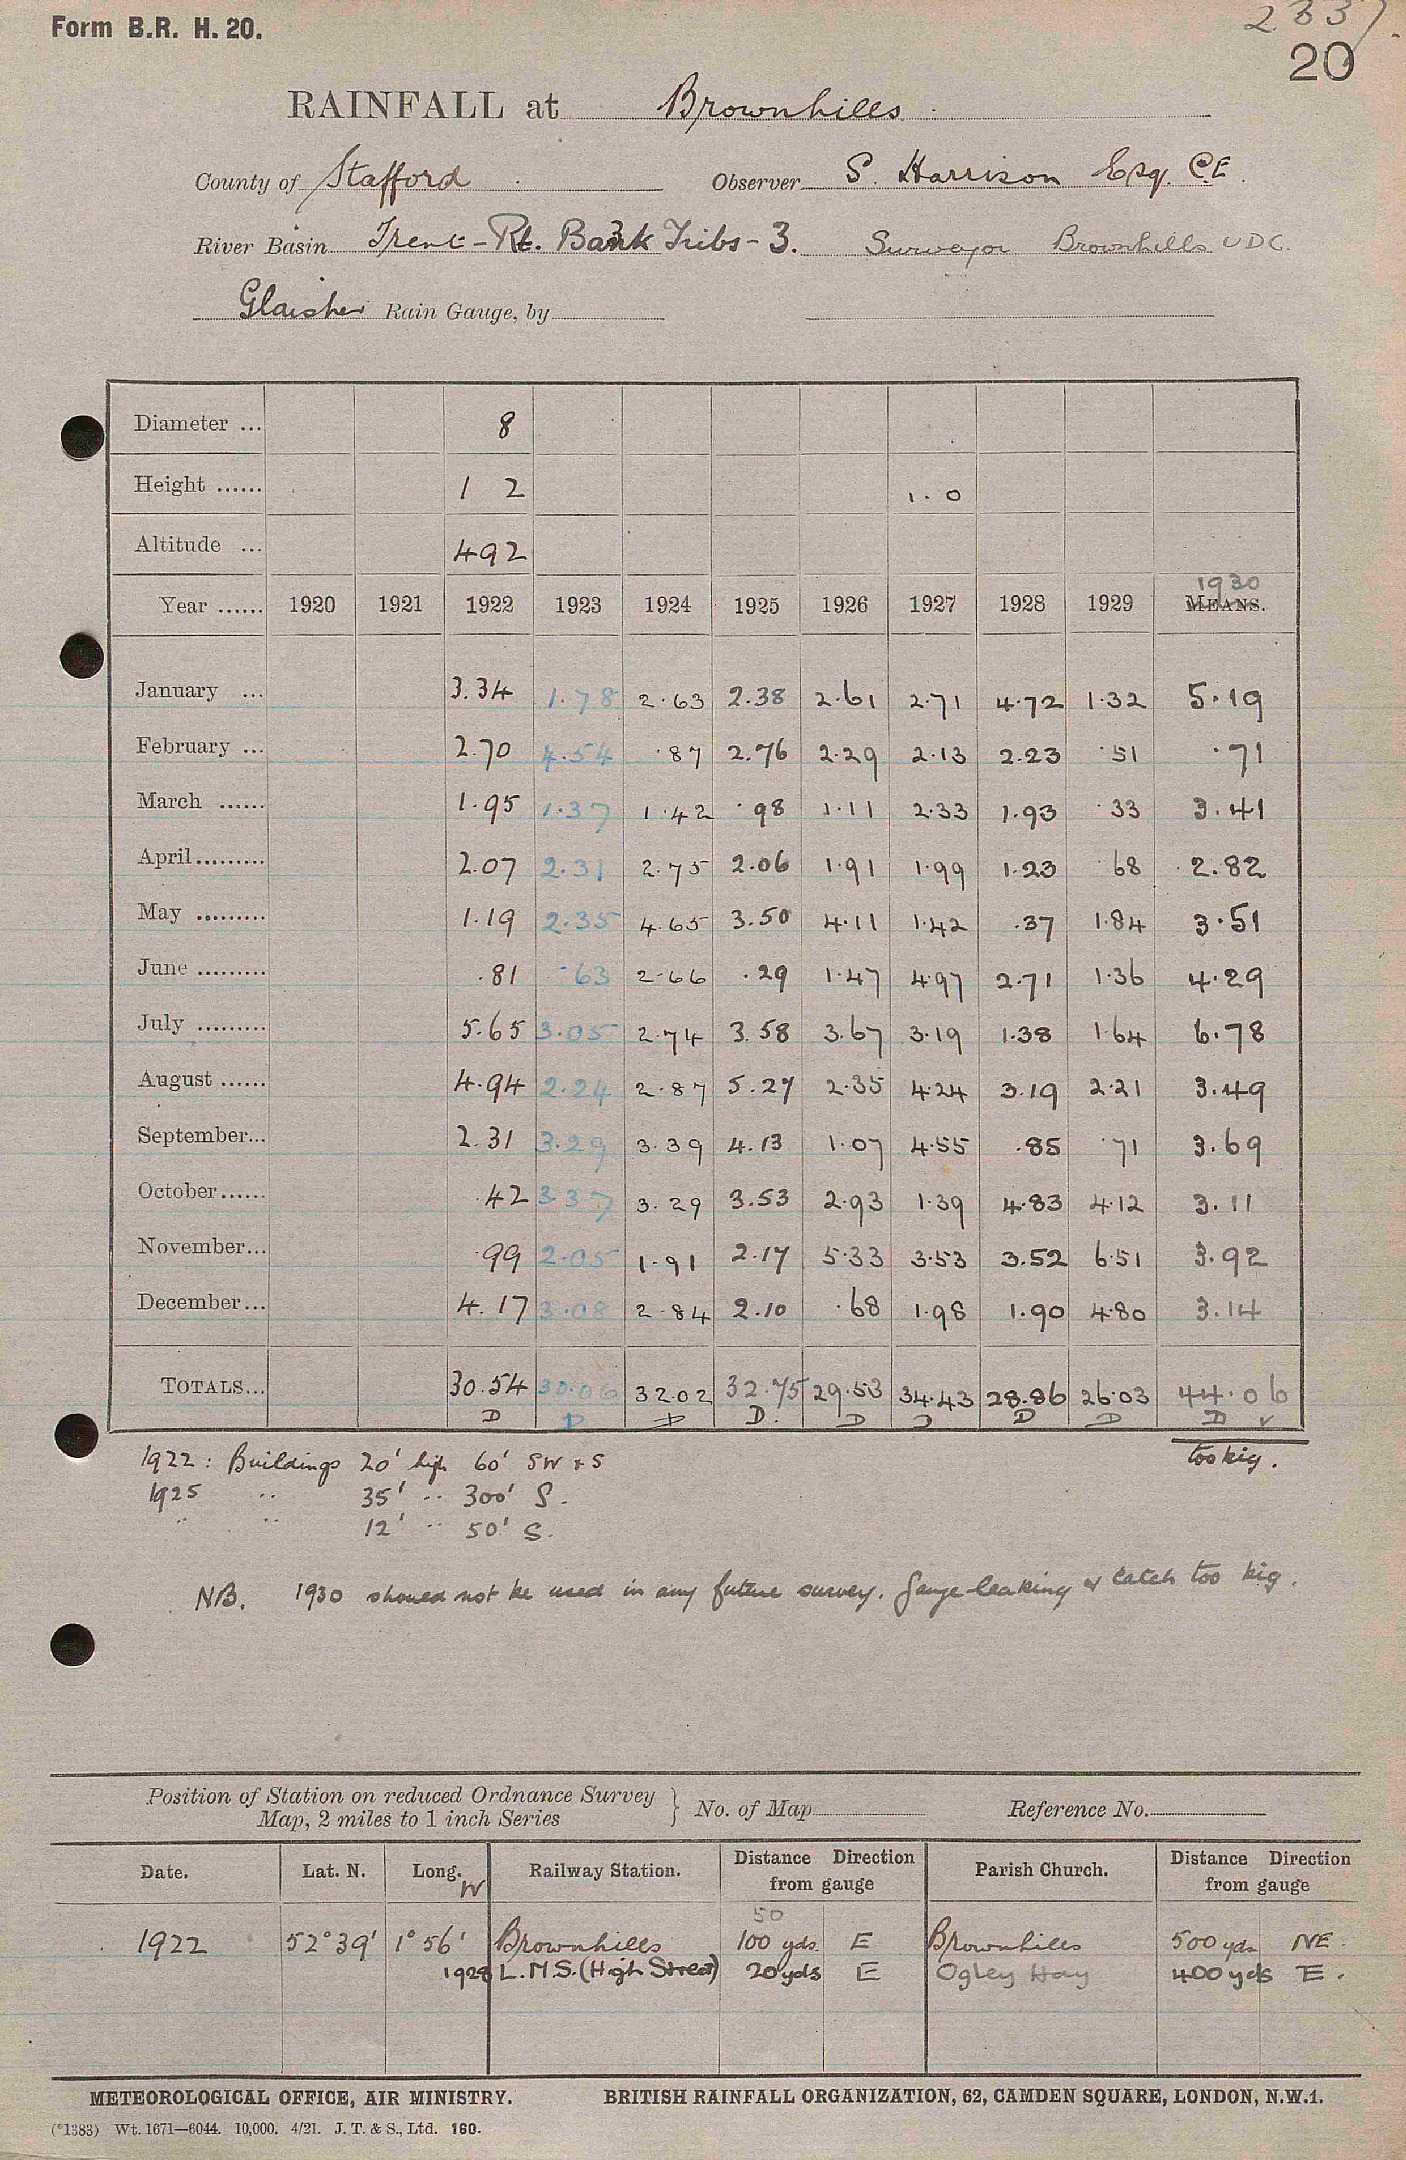 Form B.R. H. 20.
2337.
20
RAINFALL at Brownhills
County of Stafford Observer S. Harrison Esq. C.E.
River Basin Trent - Rt. Bank Tribs - 3. Surveyor Brownhills UDC.
Glaisher Rain Gauge, by
Diameter ... 8
Height ...... 1 2 1.0
Altitude ... 492
1930
Year ...... 1920 1921 1922 1923 1924 1925 1926 1927 1928 1929 MEANS.
January ... 3.34 1.78 2.63 2.38 2.61 2.71 4.72 1.32 5.19
February ... 2.70 4.54 .87 2.76 2.29 2.13 2.23 .51 .71
March ...... 1.95 1.37 1.42 .98 1.11 2.33 1.93 .33 3.41
April......... 2.07 2.31 2.75 2.06 1.91 1.99 1.23 .68 2.82
May ......... 1.19 2.35 4.65 3.50 4.11 1.42 .37 1.84 3.51
June ......... .81 .63 2.66 .29 1.47 4.97 2.71 1.36 4.29
July ......... 5.65 3.05 2.74 3.58 3.67 3.19 1.38 1.64 6.78
August ...... 4.94 2.24 2.87 5.27 2.35 4.24 3.19 2.21 3.49
September... 2.31 3.29 3.39 4.13 1.07 4.55 .85 .71 3.69
October...... .42 3.37 3.29 3.53 2.93 1.39 4.83 4.12 3.11
November... .99 2.05 1.91 2.17 5.33 3.53 3.52 6.51 3.92
December... 4.17 3.08 2.84 2.10 .68 1.98 1.90 4.80 3.14
TOTALS... 30.54 30.06 32.02 32.75 29.53 34.43 28.86 26.03 44.06
D D D D. D D D D D ✓
too big.
1922 : Buildings 20' high 60' SW & S
1925 " 35' " 300' S.
" " 12' " 50' S.
NB. 1930 should not be used in any future survey. Gauge leaking & catch too big.
Position of Station on reduced Ordnance Survey
Map, 2 miles to 1 inch Series } No. of Map Reference No.
Date. Lat. N. Long. W Railway Station. Distance Direction from gauge Parish Church. Distance Direction from gauge
50
1922 52°39' 1°56' Brownhills 100 yds. E Brownhills 500 yds NE.
1928 L.M.S. (High Street) 20 yds E Ogley Hay 400 yds E.
METEOROLOGICAL OFFICE, AIR MINISTRY. BRITISH RAINFALL ORGANIZATION, 62, CAMDEN SQUARE, LONDON, N.W.1.
(*1383) Wt. 1671—6044. 10,000. 4/21. J. T. & S., Ltd. 160.